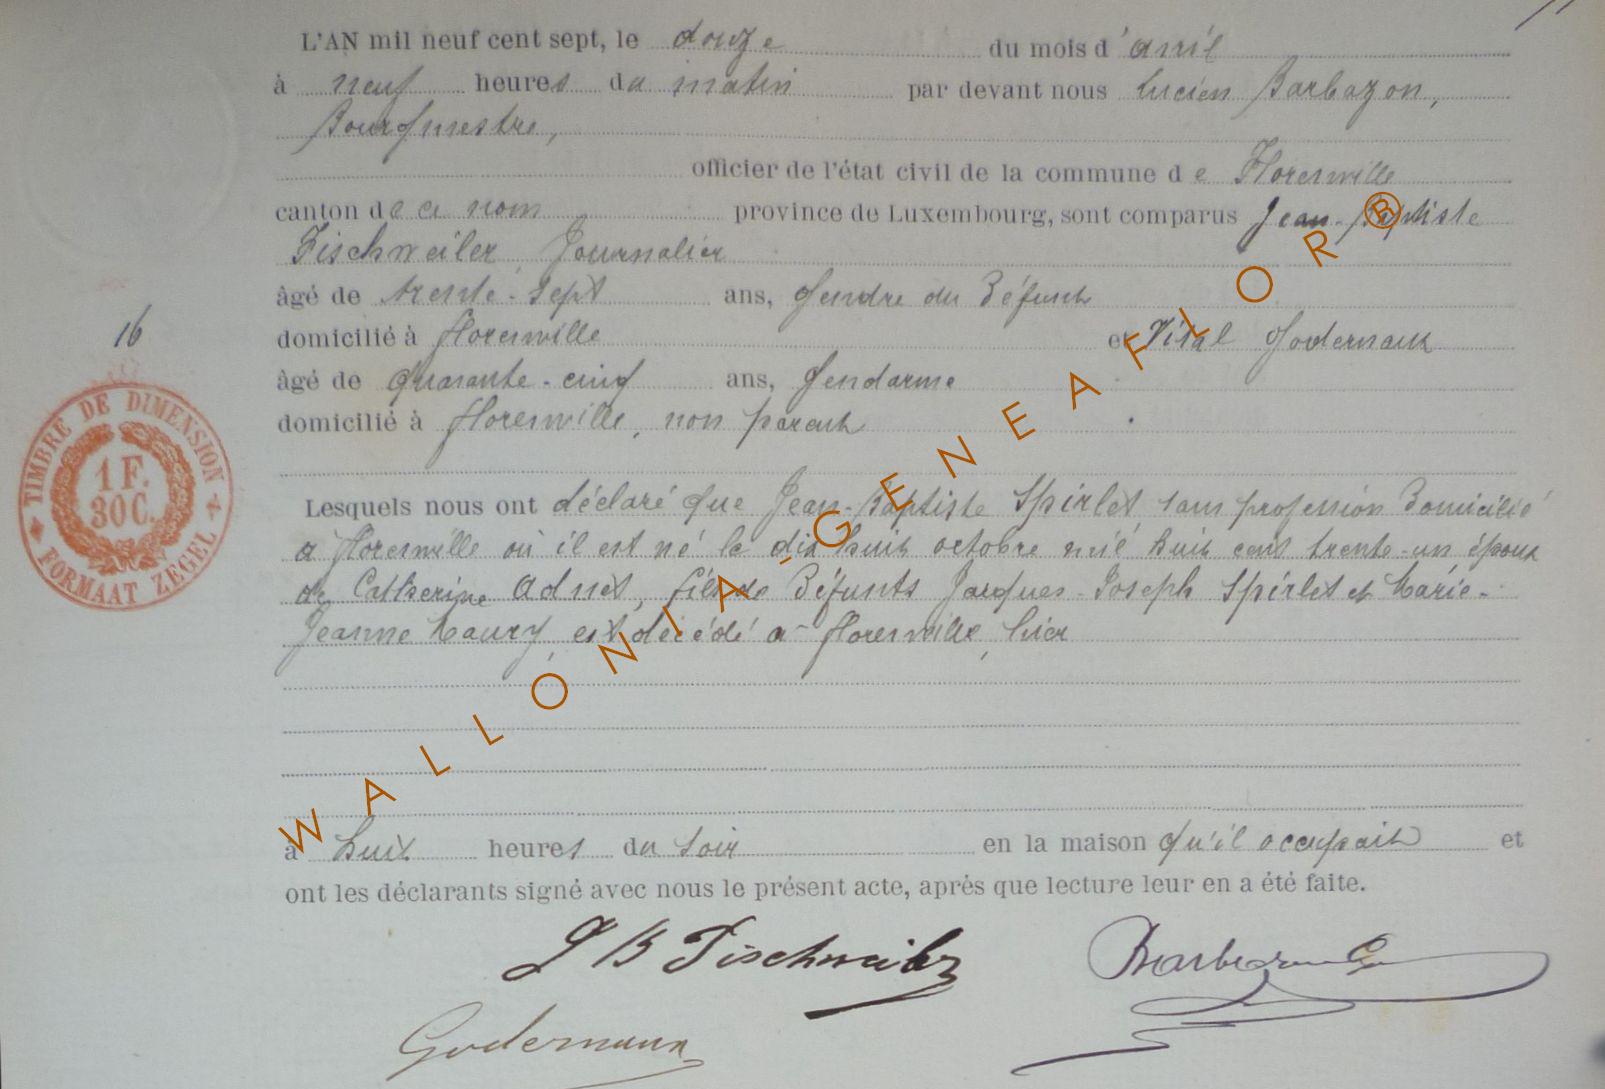 L'AN mil neuf cent sept, le douze du mois d'avril
à neuf heures du matin par devant nous Lucien Barbazon,
Bourgmestre,
officier de l'état civil de la commune de Florenville
canton de ce nom province de Luxembourg, sont comparus Jean-Baptiste
Fischweiler, Journalier
âgé de trente-sept ans, gendre du Défunt
16
domicilié à Florenville et Vital Godernaux
âgé de quarante-cinq ans, gendarme
domicilié à Florenville, non parent
TIMBRE DE DIMENSION
1 F.
30 C.
FORMAAT ZEGEL
Lesquels nous ont déclaré que Jean-Baptiste Spirlet sans profession Domicilié
a Florenville où il est né le dix huit octobre mil huit cent trente-un époux
de Catherine Adnet, fils de Défunts Jacques-Joseph Spirlet et Marie-
Jeanne Maury, est décédé a Florenville, hier
à huit heures du soir en la maison qu'il occupait et
ont les déclarants signé avec nous le présent acte, après que lecture leur en a été faite.
J B Fischweiler Barbazon
WALLONIA-GENEAFLOR®